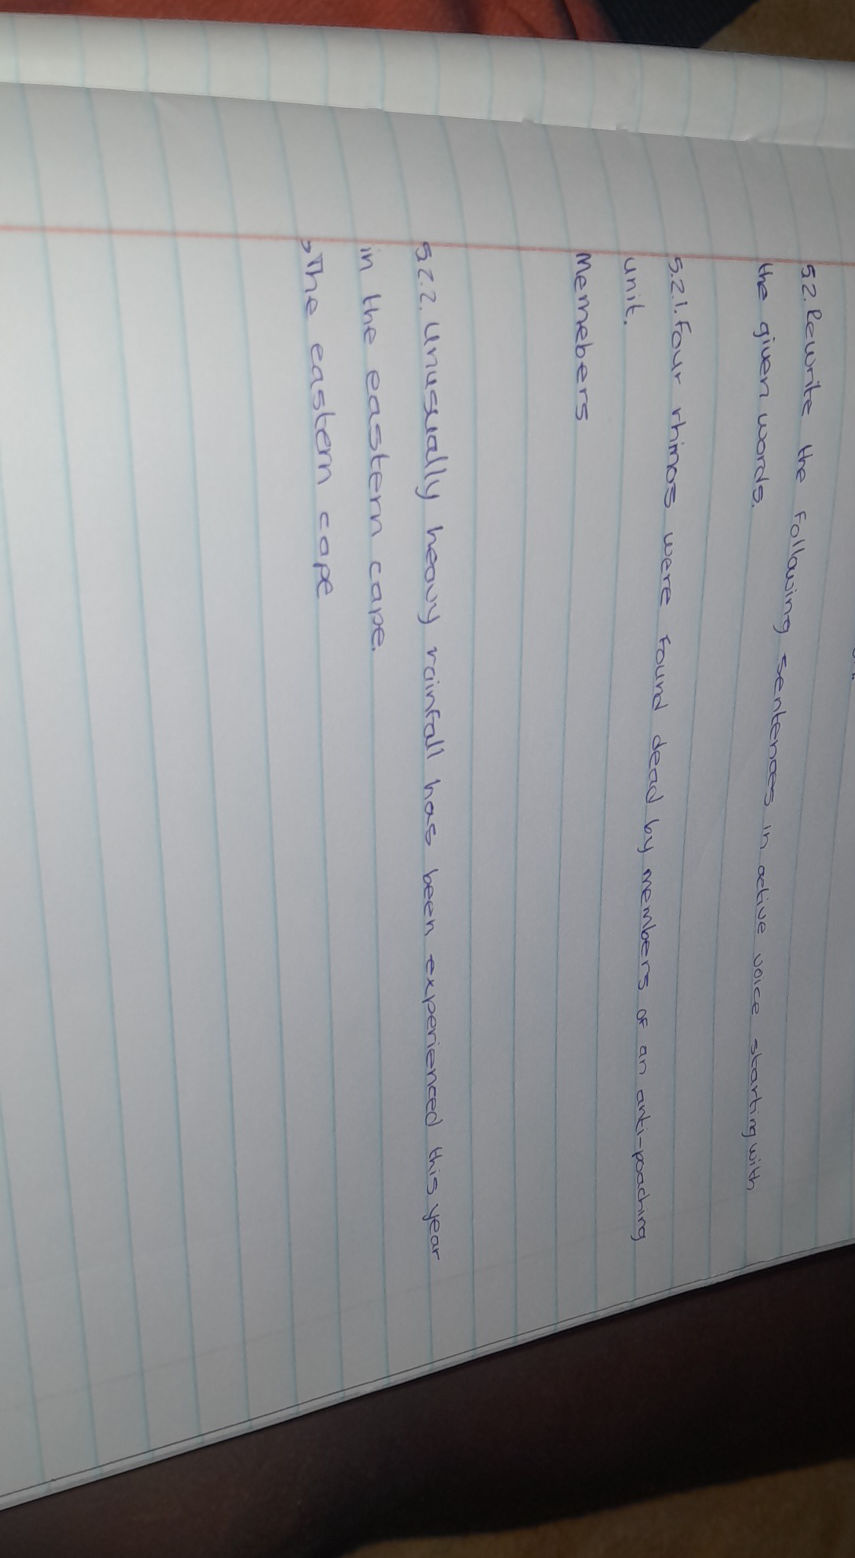 5.2. Rewrite the following sentences in active voice starting with
the given words.
5.2.1. Four rhinos were found dead by members of an anti-poaching
unit.
Memebers
5.2.2. Unusually heavy rainfall has been experienced this year
in the eastern cape.
The eastern cape